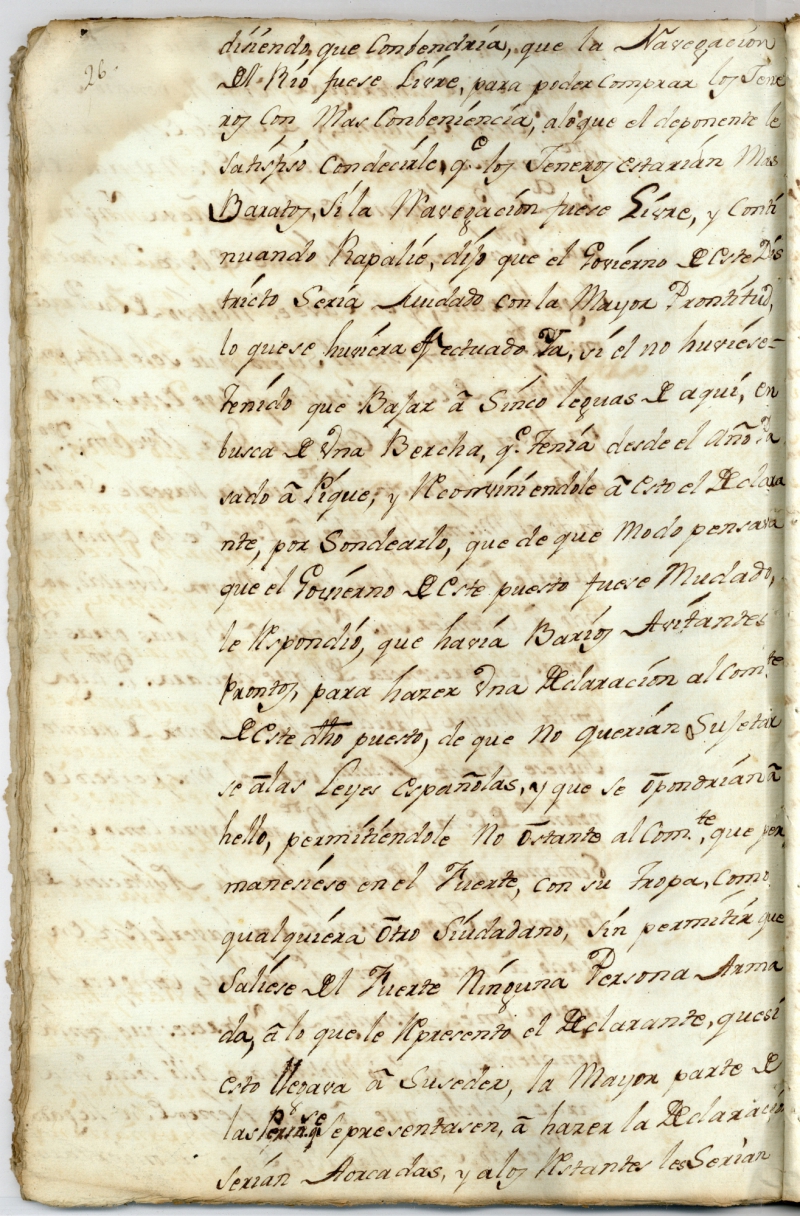 26.
diciendo, que Conbendria, que la Navegación
del Rio fuese Livre, para poder Comprar los Jene
ros Con Mas Conbeniencia; aloque el deponente le
Satisfiso Condecirle, qe. los Jeneros estarián Mas
Baratos, si la Navegación fuese Livre, y Conti
nuando Rapalie, dijo que el Govierno de este Dis
tricto Seria Mudado con la Mayor Prontitud,
lo quese huviera efectuado Ya, si el no huviese-
tenido que Bajar â Sinco leguas de aqui, en
busca de Una Bercha, qe. Tenia desde el año Pa
sado â Pique; y Reconviniendole â esto el Declara
nte, por Sondearlo, que de que Modo pensava
que el Govierno de este puesto fuese Mudado,
le Respondió, que havia Barios Avitantes
Prontos, para hazer Una Declaración al Comte.
de este dho puesto, de que No querián Sujetar
se âlas Leyes españolas, y que se ôpondrián â
hello, permitiendole No ôstante al Comte., que per
maneciese en el Fuerte, con su tropa, como
qualquiera ôtro Siudadano, sin permitir que
Saliese del Fuerte Ninguna Persona Arma
da, â lo que le Represento el Declarante, quesi
esto llegava â Suseder, la Mayor parte de
las Persns. qe. Se presentasen, â hazer la Declaración
serián Aorcadas, y alos Restantes les Serian